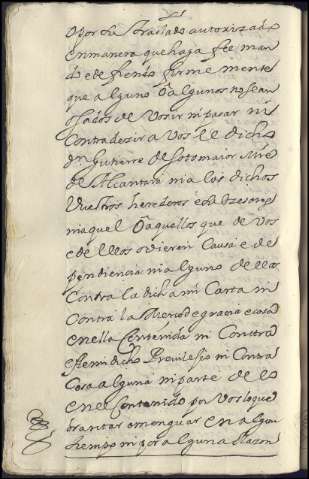 o por su traslado autorizado
en manera que haga fee man
do e defiendo firmemente
que alguno o algunos no sean
osados de Vos ir ni pasar ni
Contradesir a Vos el dicho
Dn Gutierre de Sotomaior Mre
de Alcantara ni a los dichos
Vuestros herederos e subzesores
ni aquel o aquellos que de Vos
e de ellos ovieren Causa e de
pendiencia ni alguno de ellos
Contra la dicha mi Carta ni
Contra la Merced e gracia e cosa
en ella Contenida ni Contra
este mi dicho Previlesio ni Contra
Cosa alguna ni parte de lo
en el Contenido por Vos lo que
brantar o menguar en algun
tiempo ni por alguna Razon